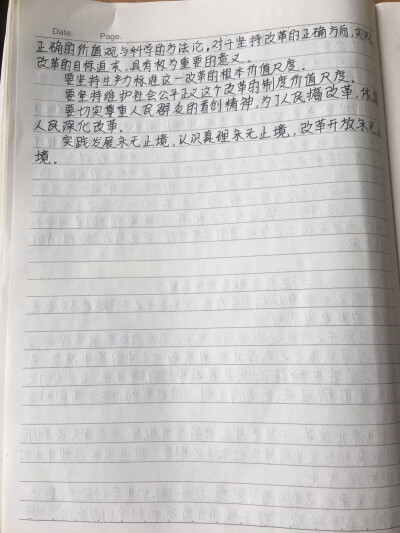 Date. Page.
正确的价值观与科学的方法论，对于坚持改革的正确方向，实现
改革的目标追求，具有极为重要的意义。
要坚持生产力标准这一改革的根本价值尺度。
要坚持维护社会公平正义这个改革的制度价值尺度。
要切实尊重人民群众的首创精神，为了人民搞改革，依靠
人民深化改革。
实践发展永无止境，认识真理永无止境，改革开放永无止
境。